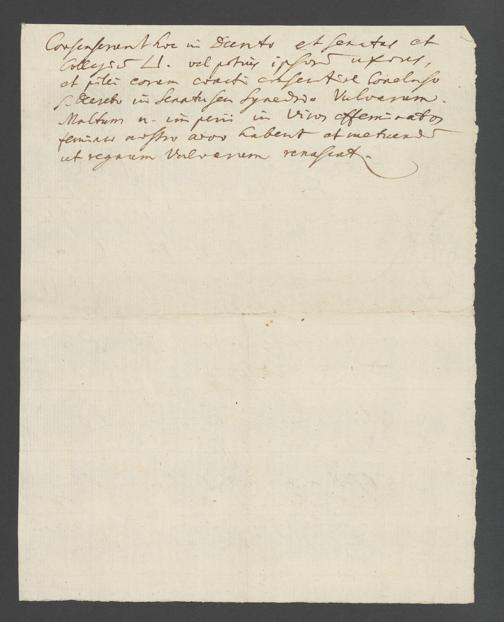 Consenserunt hoc in Decreto et Senatus et
Collegiū LI. vel potius ipsorū uxores,
et filii coram coacti consentire Concluso
s. Decreto in Senatu seu Synedrio Vulvarum.
Multum n. imperii in Viros effeminatos
feminae nostro aevo habent et metuendū
ut regnum Vulvarum renascat.